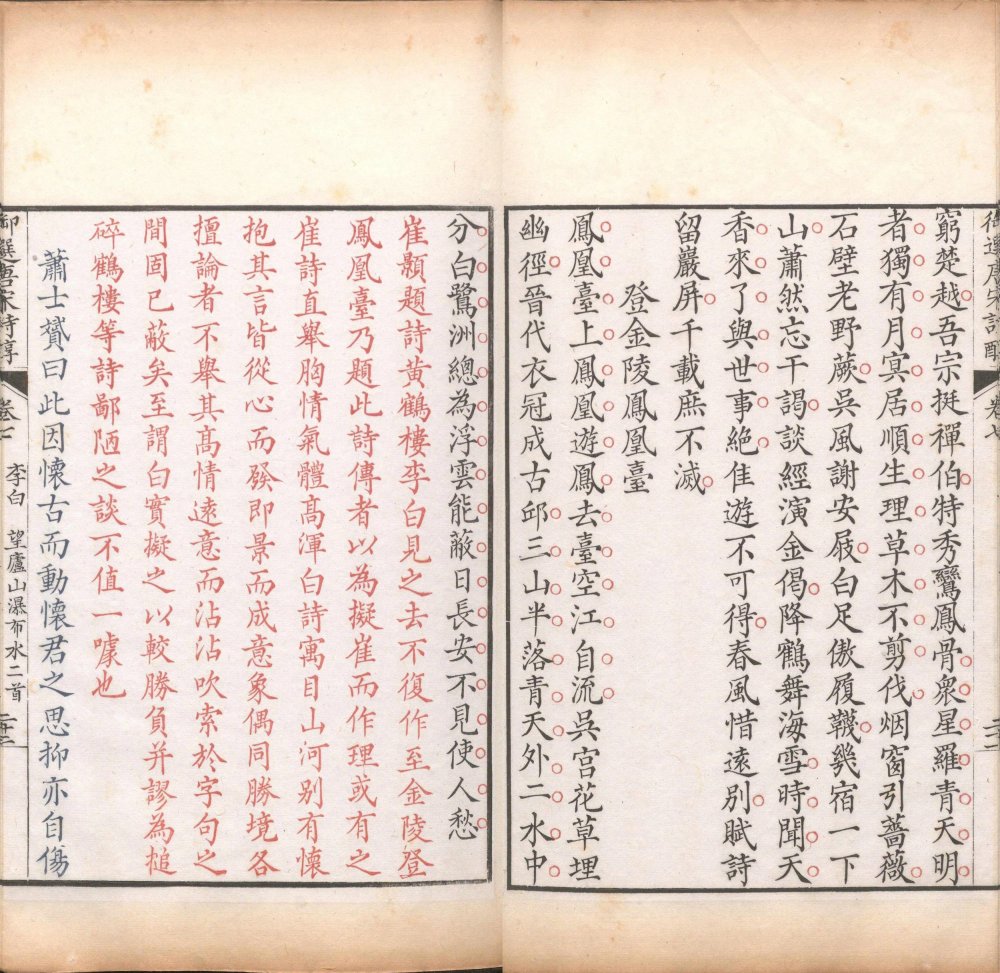 窮楚越吾宗挺禪伯特秀鸞鳳骨衆星羅青天明
者獨有月冥居順生理草木不剪伐烟窗引薔薇
石壁老野蕨吳風謝安屐白足傲履韈幾宿一下
山蕭然忘干謁談經演金偈降鶴舞海雪時聞天
香來了與世事絶佳遊不可得春風惜遠別賦詩
留巖屏千載庶不滅
登金陵鳳凰臺
鳳凰臺上鳳凰遊鳳去臺空江自流吳宮花草埋
幽徑晉代衣冠成古邱三山半落青天外二水中
分白鷺洲總為浮雲能蔽日長安不見使人愁
崔顥題詩黄鶴樓李白見之去不復作至金陵登
鳳凰臺乃題此詩傳者以為擬崔而作理或有之
崔詩直舉胸情氣體髙渾白詩寓目山河别有懷
抱其言皆從心而發即景而成意象偶同勝境各
擅論者不舉其髙情逺意而沾沾吹索於字句之
間固已蔽矣至謂白實擬之以較勝負并謬為槌
碎鶴樓等詩鄙陋之談不值一噱也
蕭士贇曰此因懷古而動懷君之思抑亦自傷
御選唐宋詩醇
卷七
李白 望廬山瀑布水二首